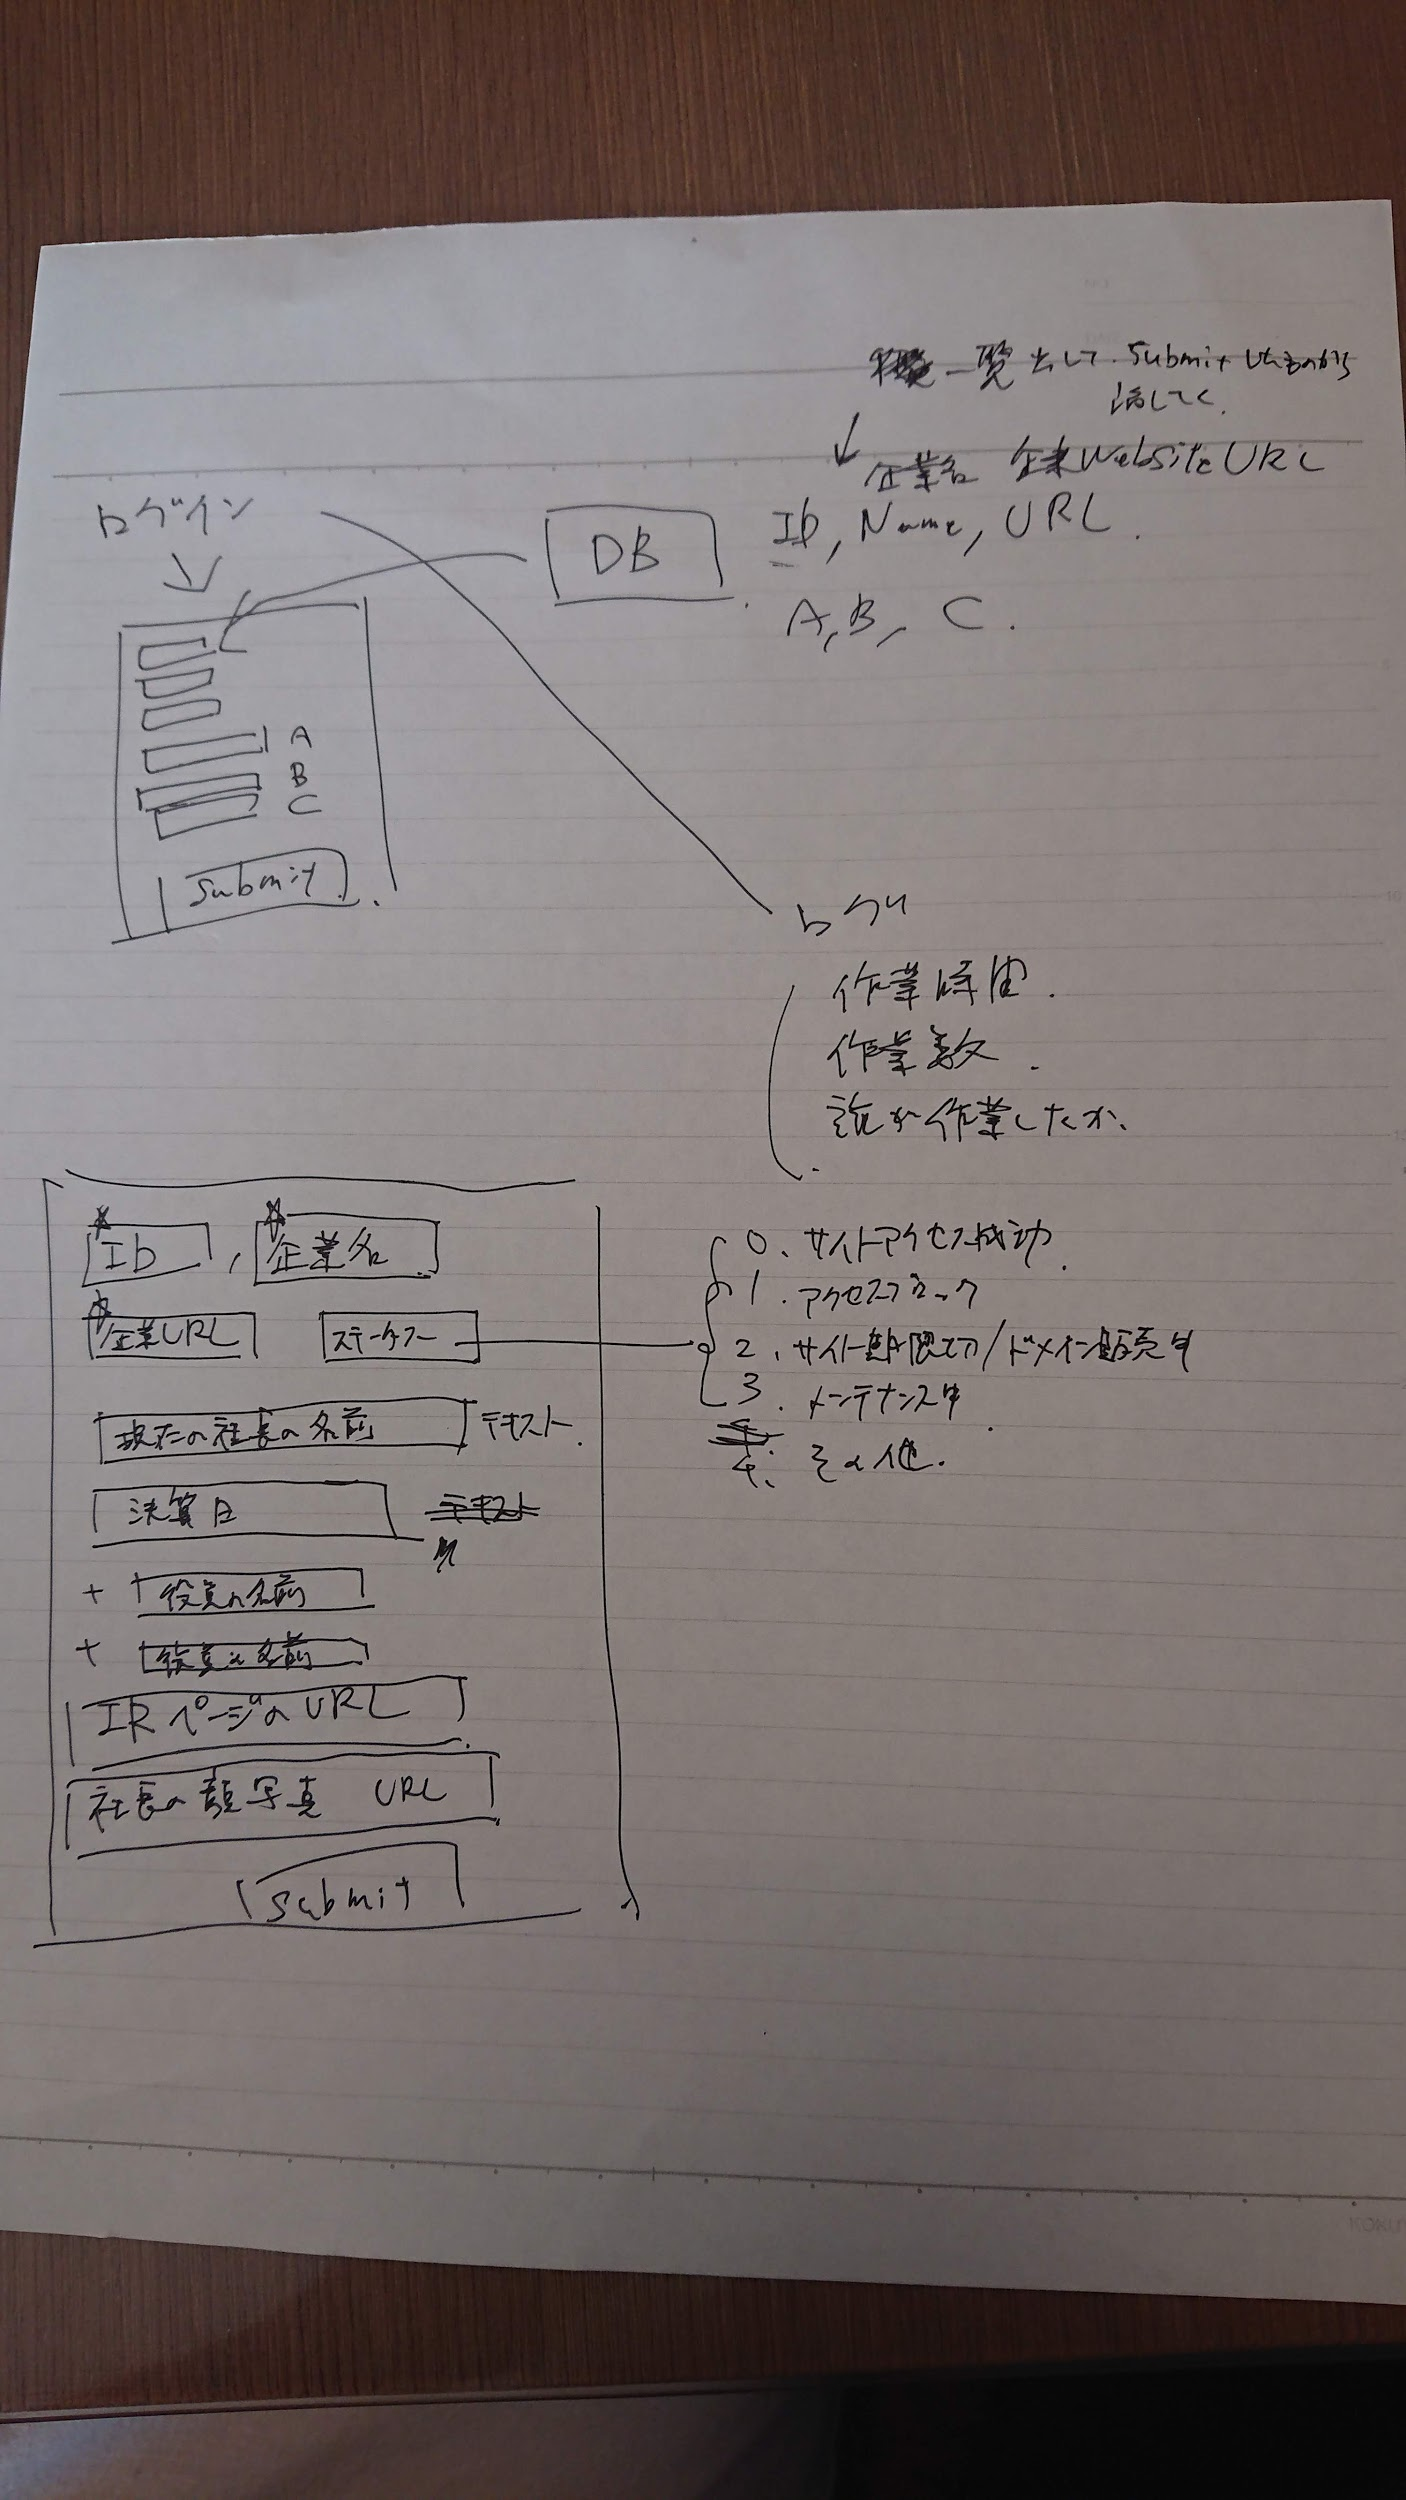 一覧出して、Submitしたものから
消してく
企業名 企業Website URL
ログイン
DB
Id, Name, URL.
A, B, C.
A
B
C
Submit
ログ
作業時間.
作業数.
誰が作業したか、
Id, 企業名
企業URL ステータス
0. サイトアクセス成功
1. アクセスブロック
2. サイト期限切/ドメイン販売中
3. メンテナンス中
4. その他.
現在の社長の名前 テキスト
決算日 テキスト
+ 役員の名前
+ 役員の名前
IRページのURL
社長の顔写真 URL
Submit